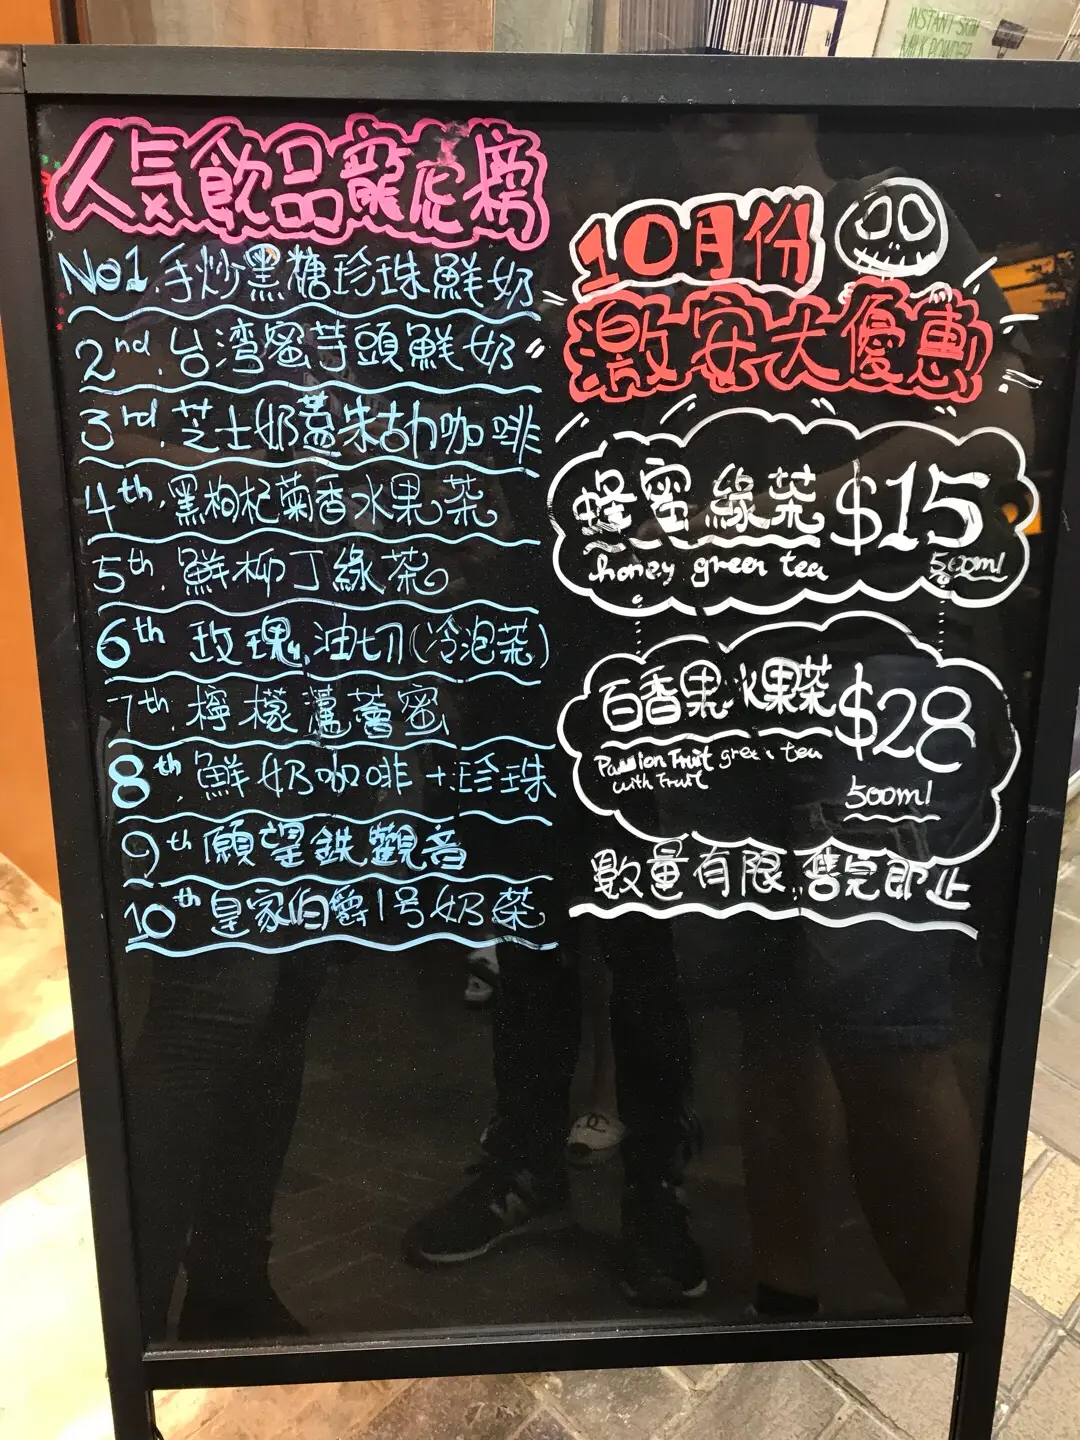 INSTANT SKIM
MILK POWDER
人気飲品龍虎榜
No1.手炒黑糖珍珠鮮奶
2nd.台湾蜜芋頭鮮奶
3rd.芝士奶蓋朱古力咖啡
4th.黑枸杞菊香水果茶
5th.鮮柳丁綠茶
6th 玫瑰油切(冷泡茶)
7th.檸檬蘆薈蜜
8th.鮮奶咖啡+珍珠
9th 願望鉄觀音
10th 皇家伯爵1号奶茶
10月份
激安大優惠
蜂蜜綠茶 $15
honey green tea 500ml
百香果水果茶 $28
Passion Fruit green tea
with Fruit
500ml
數量有限,售完即止